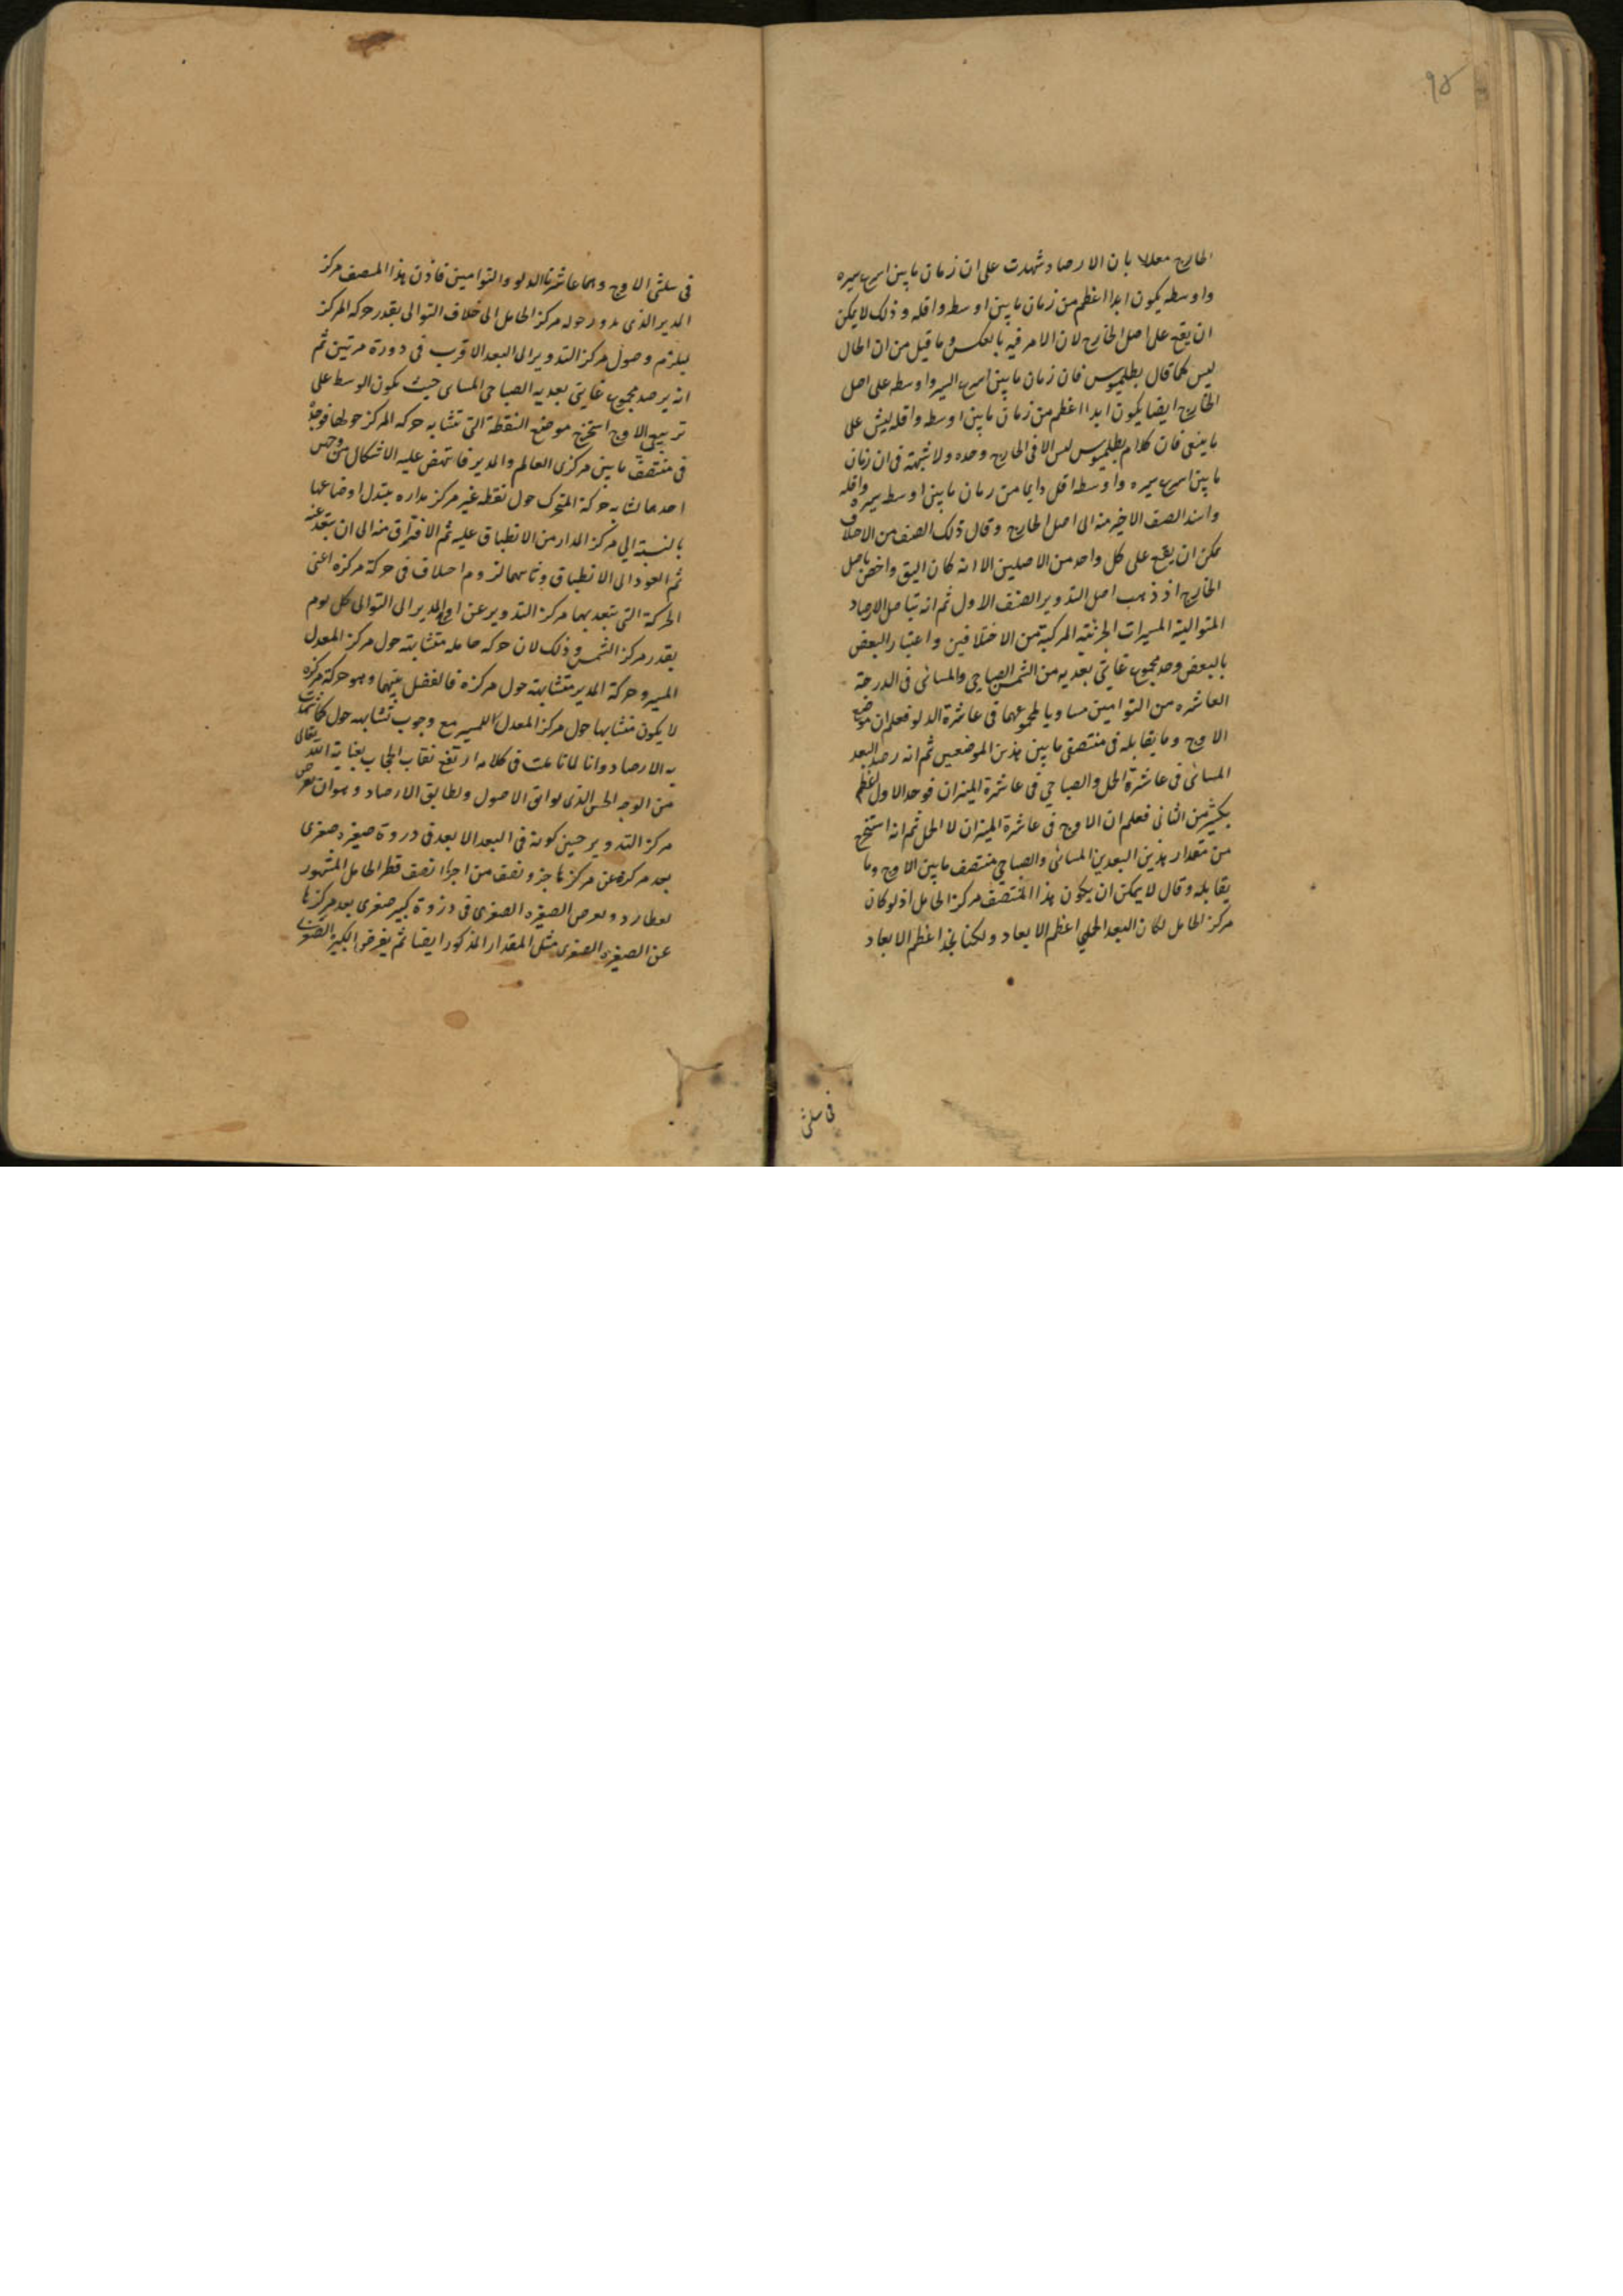 ٩٥
الخارج معللا بان الارصاد شهدت على ان زمان ما بين اسرع سيره
واوسطه يكون ابدا اعظم من زمان ما بين اوسطه واقله وذلك لا يمكن
ان يقع على اصل الخارج لان الامر فيه بالعكس وما قيل من ان الحال
ليس كما قال بطلميوس فان زمان ما بين اسرع السير واوسطه على اصل
الخارج ايضا يكون ابدا اعظم من زمان ما بين اوسطه واقله ليس على
ما ينبغى فان كلام بطلميوس ليس الا فى الخارج وحده ولا شبهة فى ان زمان
ما بين اسرع سيره واوسطه اقل دايما من زمان ما بين اوسط سيره واقله
واسند الصنف الاخير منه الى اصل الخارج وقال ذلك الصنف من الاختلاف
يمكن ان يقع على كل واحد من الاصلين الا انه كان اليق واخص باصل
الخارج اذ ذهب اصل التدوير الصنف الاول ثم انه تباصل الارصاد
المتوالية المسيرات الجزئية المركبة من الاختلافين واعتبار البعض
بالبعض وجد مجموع غايتى بعديه من الشمس الصباحى والمسائى فى الدرجة
العاشره من التوامين مساويا لمجموعهما فى عاشرة الدلو فعلم ان موضع
الاوج وما يقابله فى منتصفى ما بين هذين الموضعين ثم انه رصد البعد
المسائى فى عاشرة الحمل والصباحى فى عاشرة الميزان فوجد الاول اعظم
بكثير من الثانى فعلم ان الاوج فى عاشرة الميزان لا الحمل ثم انه استخرج
من مقدار هذين البعدين المسائى والصباحى منتصف ما بين الاوج وما
يقابله وقال لا يمكن ان يكون هذا المنتصف مركز الحامل اذ لو كان
مركز الحامل لكان البعد الحملى اعظم الابعاد ولكنا نجد اعظم الابعاد
فى مثلثى
فى مثلثى الاوج وهما عاشرتا الدلو والتوامين فاذن هذا المنصف مركز
المدير الذى يدور حوله مركز الحامل الى خلاف التوالى بقدر حركة المركز
ليلزم وصول مركز التدوير الى البعد الاقرب فى دورة مرتين ثم
انه برصد مجموع غايتى بعديه الصباحى المسائى حيث يكون الوسط على
تربيعى الاوج استخرج موضع النقطة التى تتشابه حركة المركز حولها فوجد
فى منتصف ما بين مركزى العالم والمدير فانتهض عليه الاشكال من وجهين
احدهما تشابه حركة المتحرك حول نقطة غير مركز مداره يتبدل اوضاعها
بالنسبة الى مركز المدار من الانطباق عليه ثم الافتراق منه الى ان يبعد عنه
ثم العود الى الانطباق وثانيهما لزوم اختلاف فى حركة مركزه اعنى
الحركة التى يتبعد بها مركز التدوير عن اوج المدير الى التوالى كل يوم
بقدر مركز الشمس وذلك لان حركة حامله متشابهة حول مركز المعدل
المسير وحركة المدير متشابهة حول مركزه فالفضل بينهما وهو حركة مركزه
لا يكون متشابها حول مركز المعدل للمسير مع وجوب تشابهه حول كما شهدت
به الارصاد وانا لما تاملت فى كلامه ارتفع نقاب الحجاب بعناية الله تعالى
عن الوجه الحسن الذى يوافق الاصول ويطابق الارصاد وهو ان نفرض
مركز التدوير حين كونه فى البعد الابعد فى ذروة صغيرة صغرى
بعد مركزه عن مركزها جزو ونصف من اجزاء نصف قطر الحامل المشهور
لعطارد ونفرض الصغيرة الصغرى فى ذروة كبيرة صغرى بعد مركزها
عن الصغيرة الصغرى مثل المقدار المذكور ايضا ثم يفرض الكبيرة الصغرى